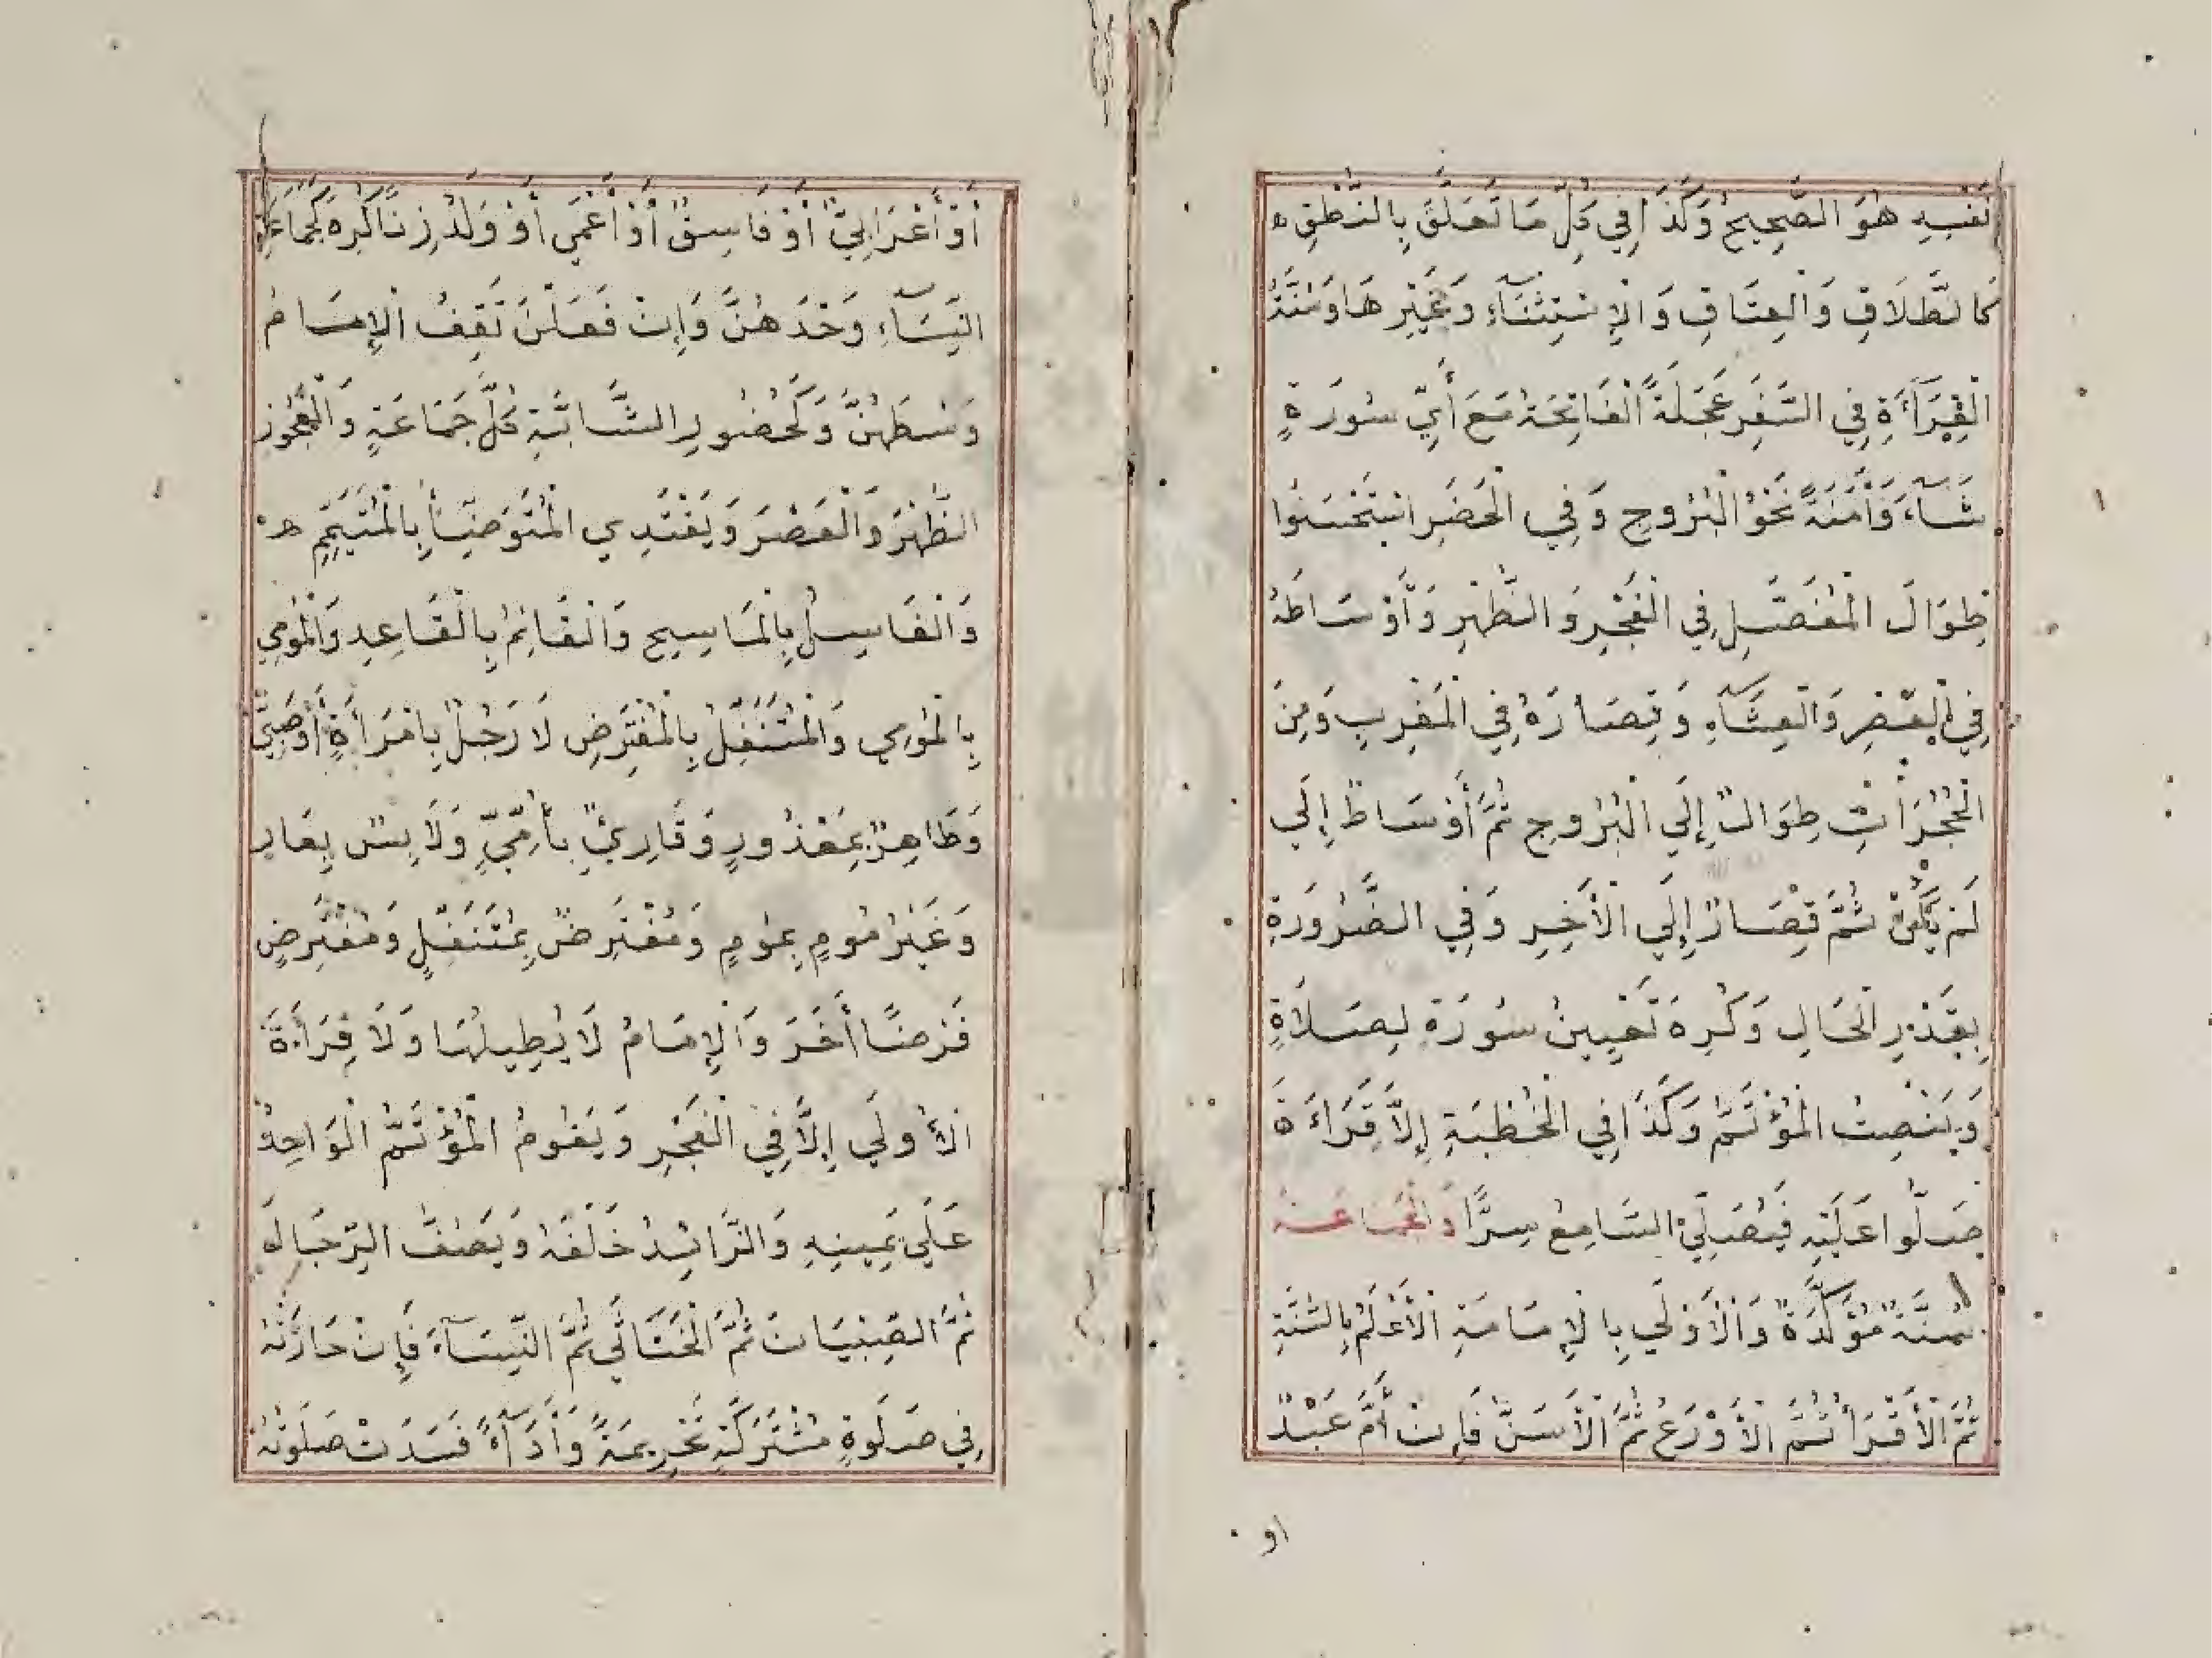 نَفْسِهِ هُوَ الصَّحِيحُ وَكَذَا فِي كُلِّ مَا تَعَلَّقَ بِالنُّطْقِ ه
كَالطَّلَاقِ وَالْعِتَاقِ وَالْإِسْتِثْنَآءِ وَغَيْرِهَا وَسُنَّةُ
الْقِرَآءَةِ فِي السَّفَرِ عَجَلَةً الْفَاتِحَةُ مَعَ أَيِّ سُورَةٍ
شَآءَ وَأَمَنَةً نَحْوُ الْبُرُوجِ وَفِي الْحَضَرِ اسْتَحْسَنُوا
طِوَالَ الْمُفَصَّلِ فِي الْفَجْرِ وَالظُّهْرِ وَأَوْسَاطَهُ
فِي الْعَصْرِ وَالْعِشَآءِ وَقِصَارَهُ فِي الْمَغْرِبِ وَمِنَ
الْحُجُرَاتِ طِوَالٌ إِلَي الْبُرُوجِ ثُمَّ أَوْسَاطٌ إِلَي
لَمْ يَكُنْ ثُمَّ قِصَارٌ إِلَي الْأَخِيرِ وَفِي الضَّرُورَةِ
بِقَدْرِ الْحَالِ وَكُرِهَ تَعْيِينُ سُورَةٍ لِصَلَاةٍ
وَيُنْصِتُ الْمُؤْتَمُّ وَكَذَا فِي الْخُطْبَةِ إِلَّا قِرَاءَةَ
صَلُّوا عَلَيْهِ فَيُصَلِّي السَّامِعُ سِرًّا وَالْجَمَاعَةُ
سُنَّةٌ مُؤَكَّدَةٌ وَالْأَوْلَي بِالْإِمَامَةِ الْأَعْلَمُ بِالسُّنَّةِ
ثُمَّ الْأَقْرَأُ ثُمَّ الْأَوْرَعُ ثُمَّ الْأَسَنُّ فَإِنْ أَمَّ عَبْدٌ
او
أَوْ أَعْرَابِيٌّ أَوْ فَاسِقٌ أَوْ أَعْمَي أَوْ وَلَدُ زِنًا كُرِهَ كَجَمَاعَةِ
النِّسَآءِ وَحْدَهُنَّ وَإِنْ فَعَلْنَ تَقِفُ الْإِمَامُ
وَسْطَهُنَّ وَكَحُضُورِ الشَّابَّةِ كُلَّ جَمَاعَةٍ وَالْعَجُوزِ
الظُّهْرَ وَالْعَصْرَ وَيَقْتَدِي الْمُتَوَضِّئُ بِالْمُتَيَمِّمِ ه
وَالْغَاسِلُ بِالْمَاسِحِ وَالْقَائِمُ بِالْقَاعِدِ وَالْمُومِي
بِالْمُومِي وَالْمُتَنَفِّلُ بِالْمُفْتَرِضِ لَا رَجُلٌ بِامْرَأَةٍ أَوْ صَبِيٍّ
وَطَاهِرٌ بِمَعْذُورٍ وَقَارِئٌ بِأُمِّيٍّ وَلَابِسٌ بِعَارٍ
وَغَيْرُ مُومٍ بِمُومٍ وَمُفْتَرِضٌ بِمُتَنَفِّلٍ وَمُفْتَرِضٍ
فَرْضًا أَخَرَ وَالْإِمَامُ لَا يُطِيلُهَا وَلَا قِرَاءَةَ
الْأُولَي إِلَّا فِي الْفَجْرِ وَيَقُومُ الْمُؤْتَمُّ الْوَاحِدُ
عَلَي يَمِينِهِ وَالزَّائِدُ خَلْفَهُ وَيَصُفُّ الرِّجَالَ
ثُمَّ الصِّبْيَانَ ثُمَّ الْخَنَاثَي ثُمَّ النِّسَآءَ فَإِنْ حَاذَتْهُ
فِي صَلَوةٍ مُشْتَرَكَةٍ تَحْرِيمَةً وَأَدَآءً فَسَدَتْ صَلَوتُهُ